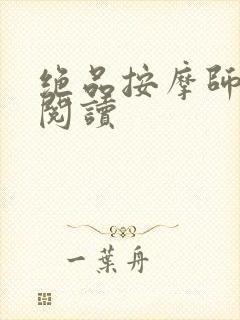 绝品按摩師
閱讀
一葉舟